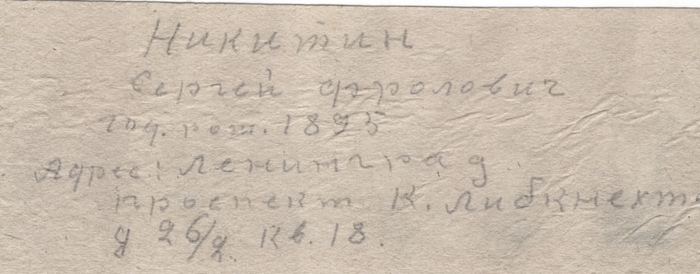 Никитин
Сергей Фролович
год. рож. 1895
Адрес: Ленинград
проспект К. Либкнехт
д 26/2. Кв. 18.